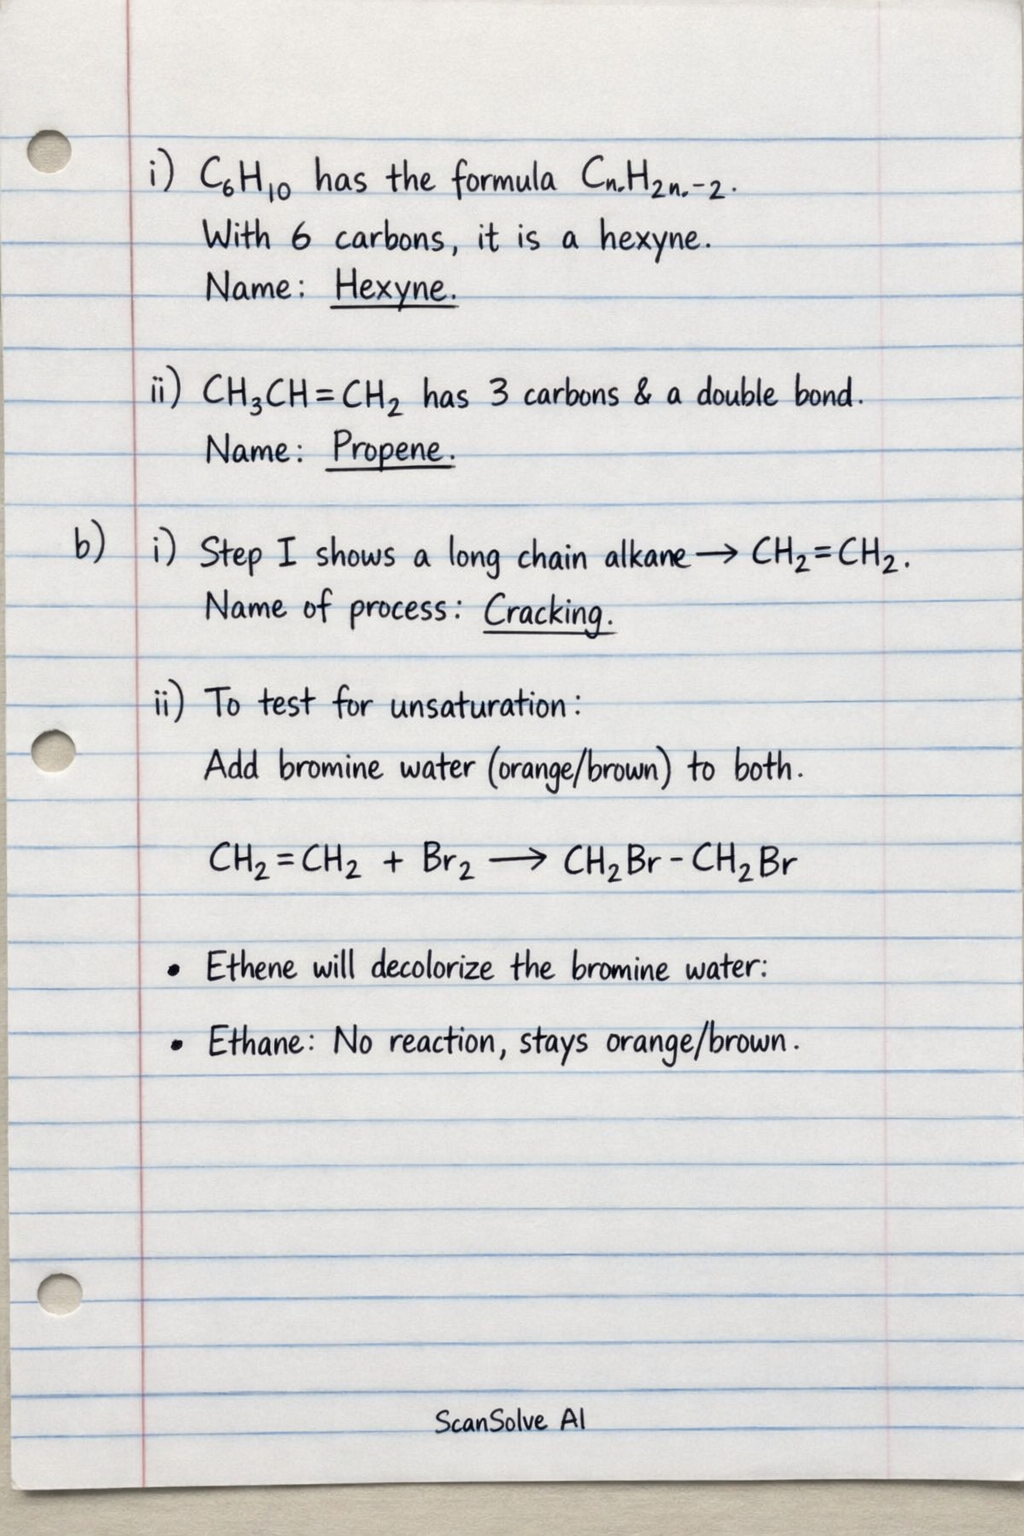 i) C₆H₁₀ has the formula Cₙ.H₂ₙ.₋₂.
With 6 carbons, it is a hexyne.
Name: Hexyne.
ii) CH₃CH=CH₂ has 3 carbons & a double bond.
Name: Propene.
b) i) Step I shows a long chain alkane → CH₂=CH₂.
Name of process: Cracking.
ii) To test for unsaturation:
Add bromine water (orange/brown) to both.
CH₂=CH₂ + Br₂ → CH₂Br-CH₂Br
• Ethene will decolorize the bromine water:
• Ethane: No reaction, stays orange/brown.
ScanSolve AI